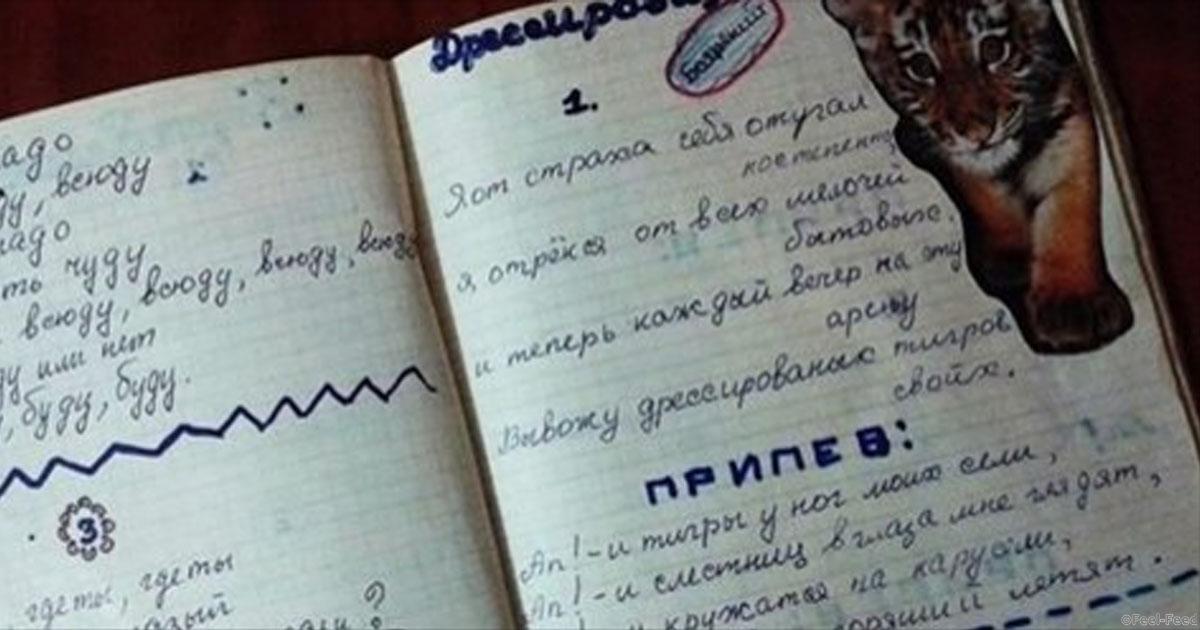 надо
всюду
надо
чуду
всюду, всюду, всюду, всюду
или нет
буду, буду.
3
где ты, где ты
?
Дрессировщик
Боярский
1.
Я от страха себя отугал
постепенно
я отрёкся от всех мелочей
бытовых.
и теперь каждый вечер на эту
арену
Вывожу дрессированых тигров
своих.
ПРИПЕВ:
Ап! - и тигры у ног моих сели,
Ап! - и с лестниц в глаза мне глядят,
и кружатся на карусели,
и летят.
©Feel-Feed